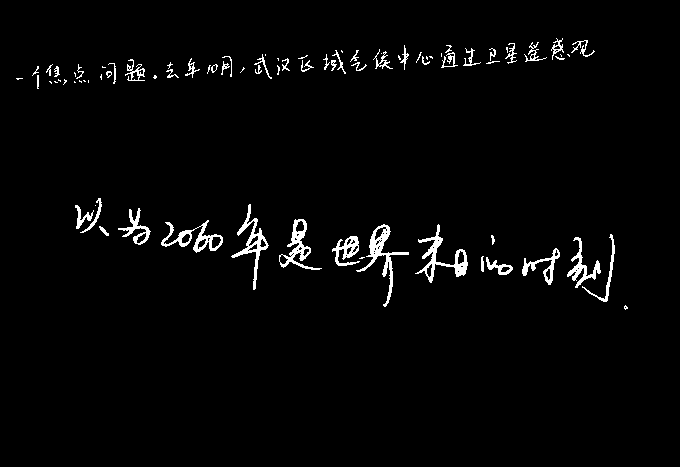 一个焦点问题。去年10月,武汉区域气候中心通过卫星遥感观
以为2060年是世界末日的时刻.